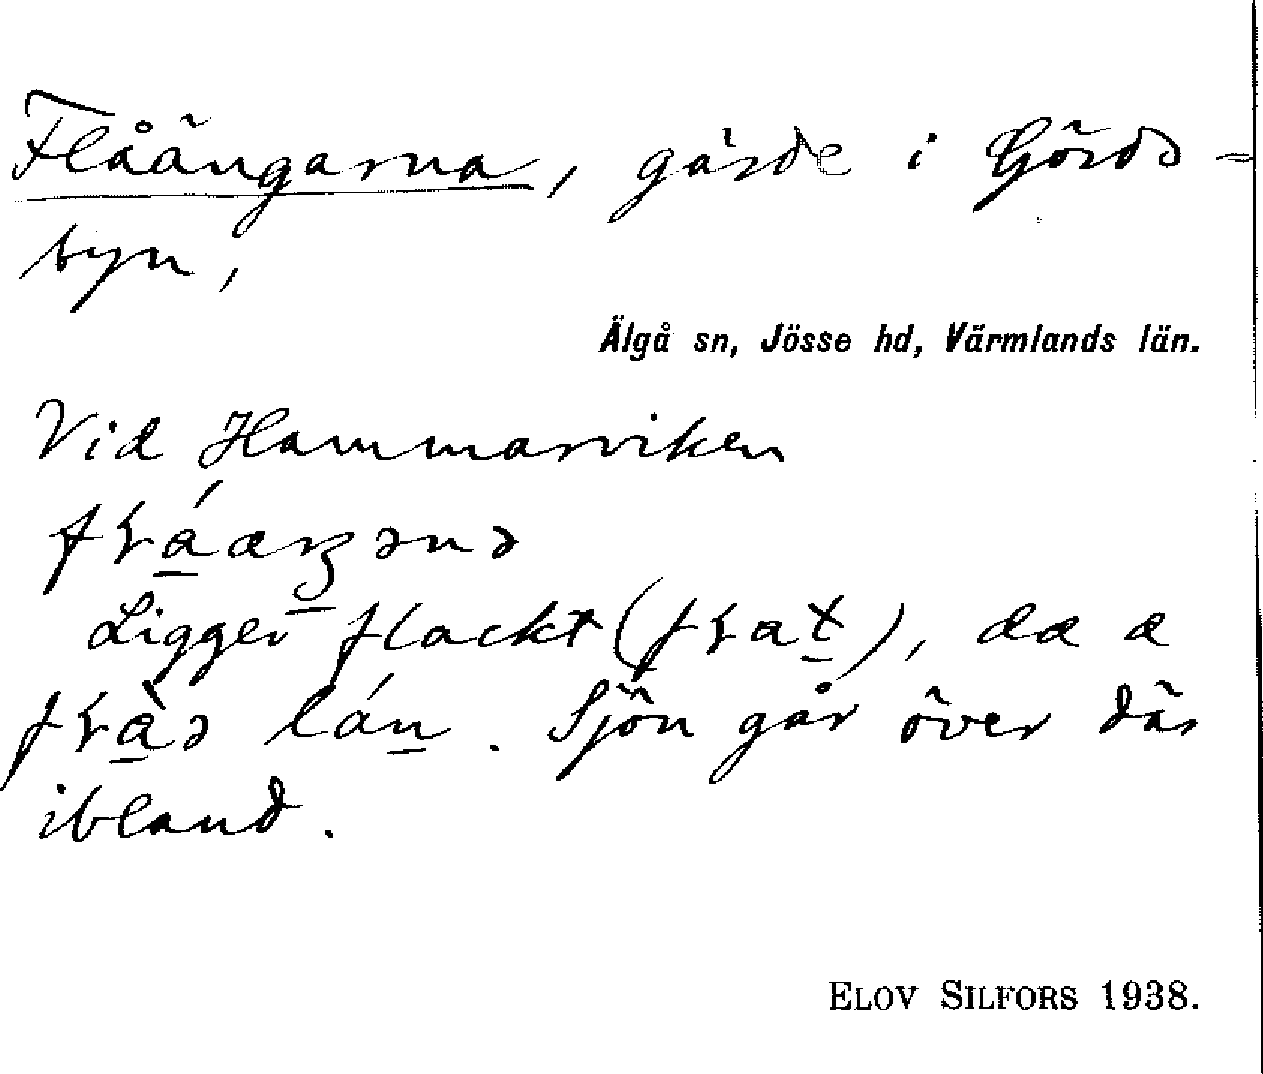 Flåängarna, gärde i Görds-
byn,
Älgå sn, Jösse hd, Värmlands län.
Vid Hammarviken
Ligger flackt (), dæ æ
Sjön går över där
ibland.
ELOV SILFORS 1938.